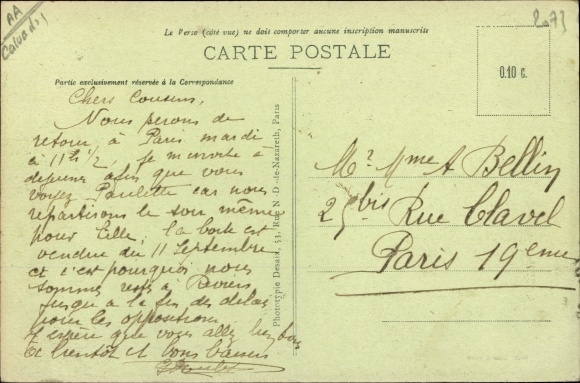 AA
Calvados
2073
Le Verso (côté vue) ne doit comporter aucune inscription manuscrite
CARTE POSTALE
Partie exclusivement réservée à la Correspondance
0.10 c.
Chers Cousins,
Nous serons de
retour à Paris mardi
à 11h 1/2, je m'invite à
dejeuner afin que vous
voyez Paulette car nous
repartirons le soir même
pour Lille, la boite est
vendue du 11 Septembre
et c'est pourquoi nous
sommes restés à
jusqu'a la fin des delais
pour les oppositions
J'espère que vous allez bien
A bientôt et bons baisers
Phototypie Desaix, 53, Rue N.-D.-de-Nazareth, Paris
Mr Mme A Bellin
25bis Rue Clavel
Paris 19eme